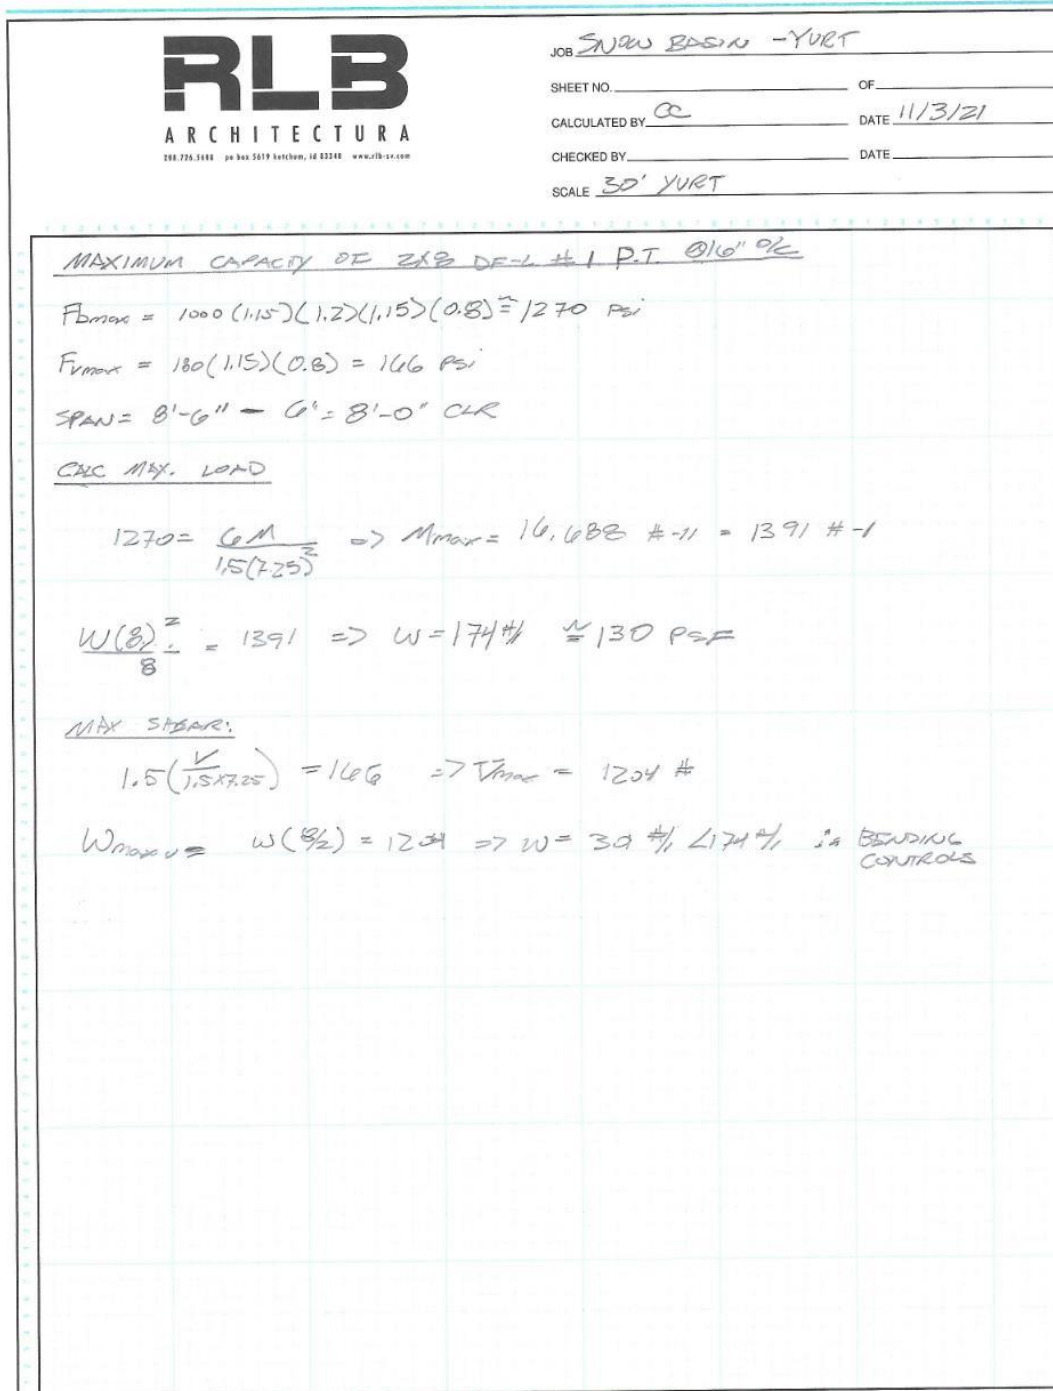 RLB
ARCHITECTURA
208.726.5608 po box 5619 ketchum, id 83340 www.rlb-sv.com
JOB SNOW BASIN - YURT
SHEET NO. OF
CALCULATED BY CC DATE 11/3/21
CHECKED BY DATE
SCALE 30' YURT
MAXIMUM CAPACITY OF 2X8 DF-L #1 P.T. @16" O/C
Fbmax = 1000 (1.15)(1.2)(1.15)(0.8) ≅ 1270 PSI
Fvmax = 180(1.15)(0.8) = 166 PSI
SPAN = 8'-6" - 6" = 8'-0" CLR
CALC MAX. LOAD
1270 = 6M / 1.5(7.25)² => Mmax = 16,688 #-" = 1391 #-'
W(8)² / 8 = 1391 => W = 174 #/' ≅ 130 PSF
MAX SHEAR:
1.5(V / 1.5x7.25) = 166 => Vmax = 1204 #
Wmax v = W(8/2) = 1204 => W = 30 #/' < 174 #/' ∴ BENDING
CONTROLS